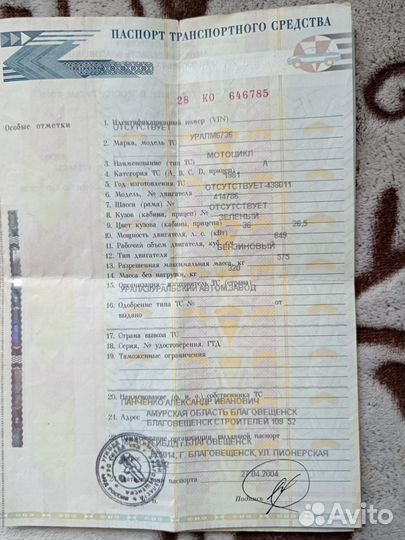 ПАСПОРТ ТРАНСПОРТНОГО СРЕДСТВА
28 КО 646785
Особые отметки
1. Идентификационный номер (VIN)
ОТСУТСТВУЕТ
2. Марка, модель ТС
УРАЛМ6736
МОТОЦИКЛ
3. Наименование (тип ТС)
А
4. Категория ТС (А, В, С, D, прицеп)
1981
5. Год изготовления ТС
ОТСУТСТВУЕТ-438011
6. Модель, № двигателя
414786
7. Шасси (рама) №
ОТСУТСТВУЕТ
8. Кузов (кабина, прицеп) №
ЗЕЛЕНЫЙ
9. Цвет кузова (кабины, прицепа)
36 26,5
10. Мощность двигателя, л. с. (кВт)
649
11. Рабочий объем двигателя, куб. см
БЕНЗИНОВЫЙ
12. Тип двигателя
575
13. Разрешенная максимальная масса, кг
320
14. Масса без нагрузки, кг
15. Организация - изготовитель ТС (страна)
16. Одобрение типа ТС № от
выдано
17. Страна вывоза ТС
18. Серия, № удостоверения, ГТД
19. Таможенные ограничения
20. Наименование (ф. и. о.) собственника ТС
ПАНЧЕНКО АЛЕКСАНДР ИВАНОВИЧ
21. Адрес
АМУРСКАЯ ОБЛАСТЬ БЛАГОВЕЩЕНСК
БЛАГОВЕЩЕНСК СТРОИТЕЛЕЙ 109 52
организации, выдавшей паспорт
Г.БЛАГОВЕЩЕНСК
Г. БЛАГОВЕЩЕНСК, УЛ. ПИОНЕРСКАЯ
паспорта
27.04.2004
Подпись
Avito